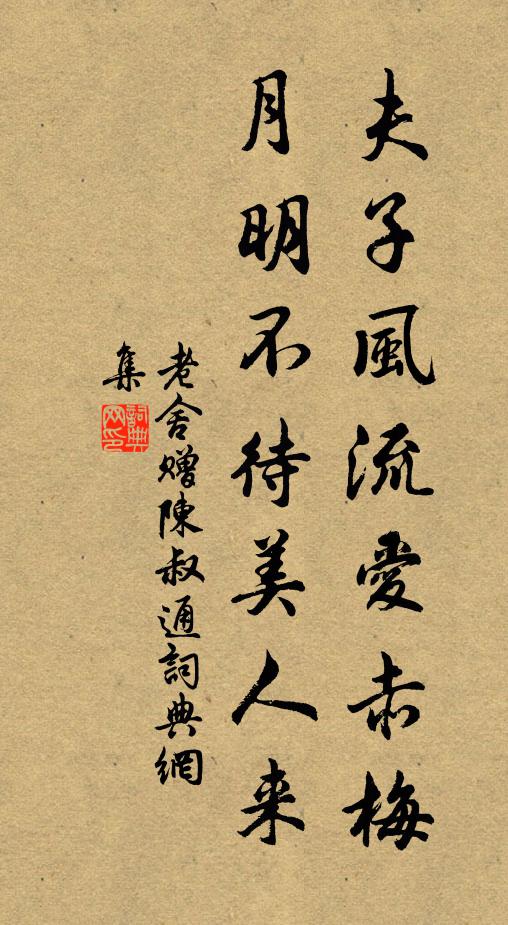 夫子風流愛赤梅
月明不待美人来
老舍赠陳叔通詞典網
集
詞典网印